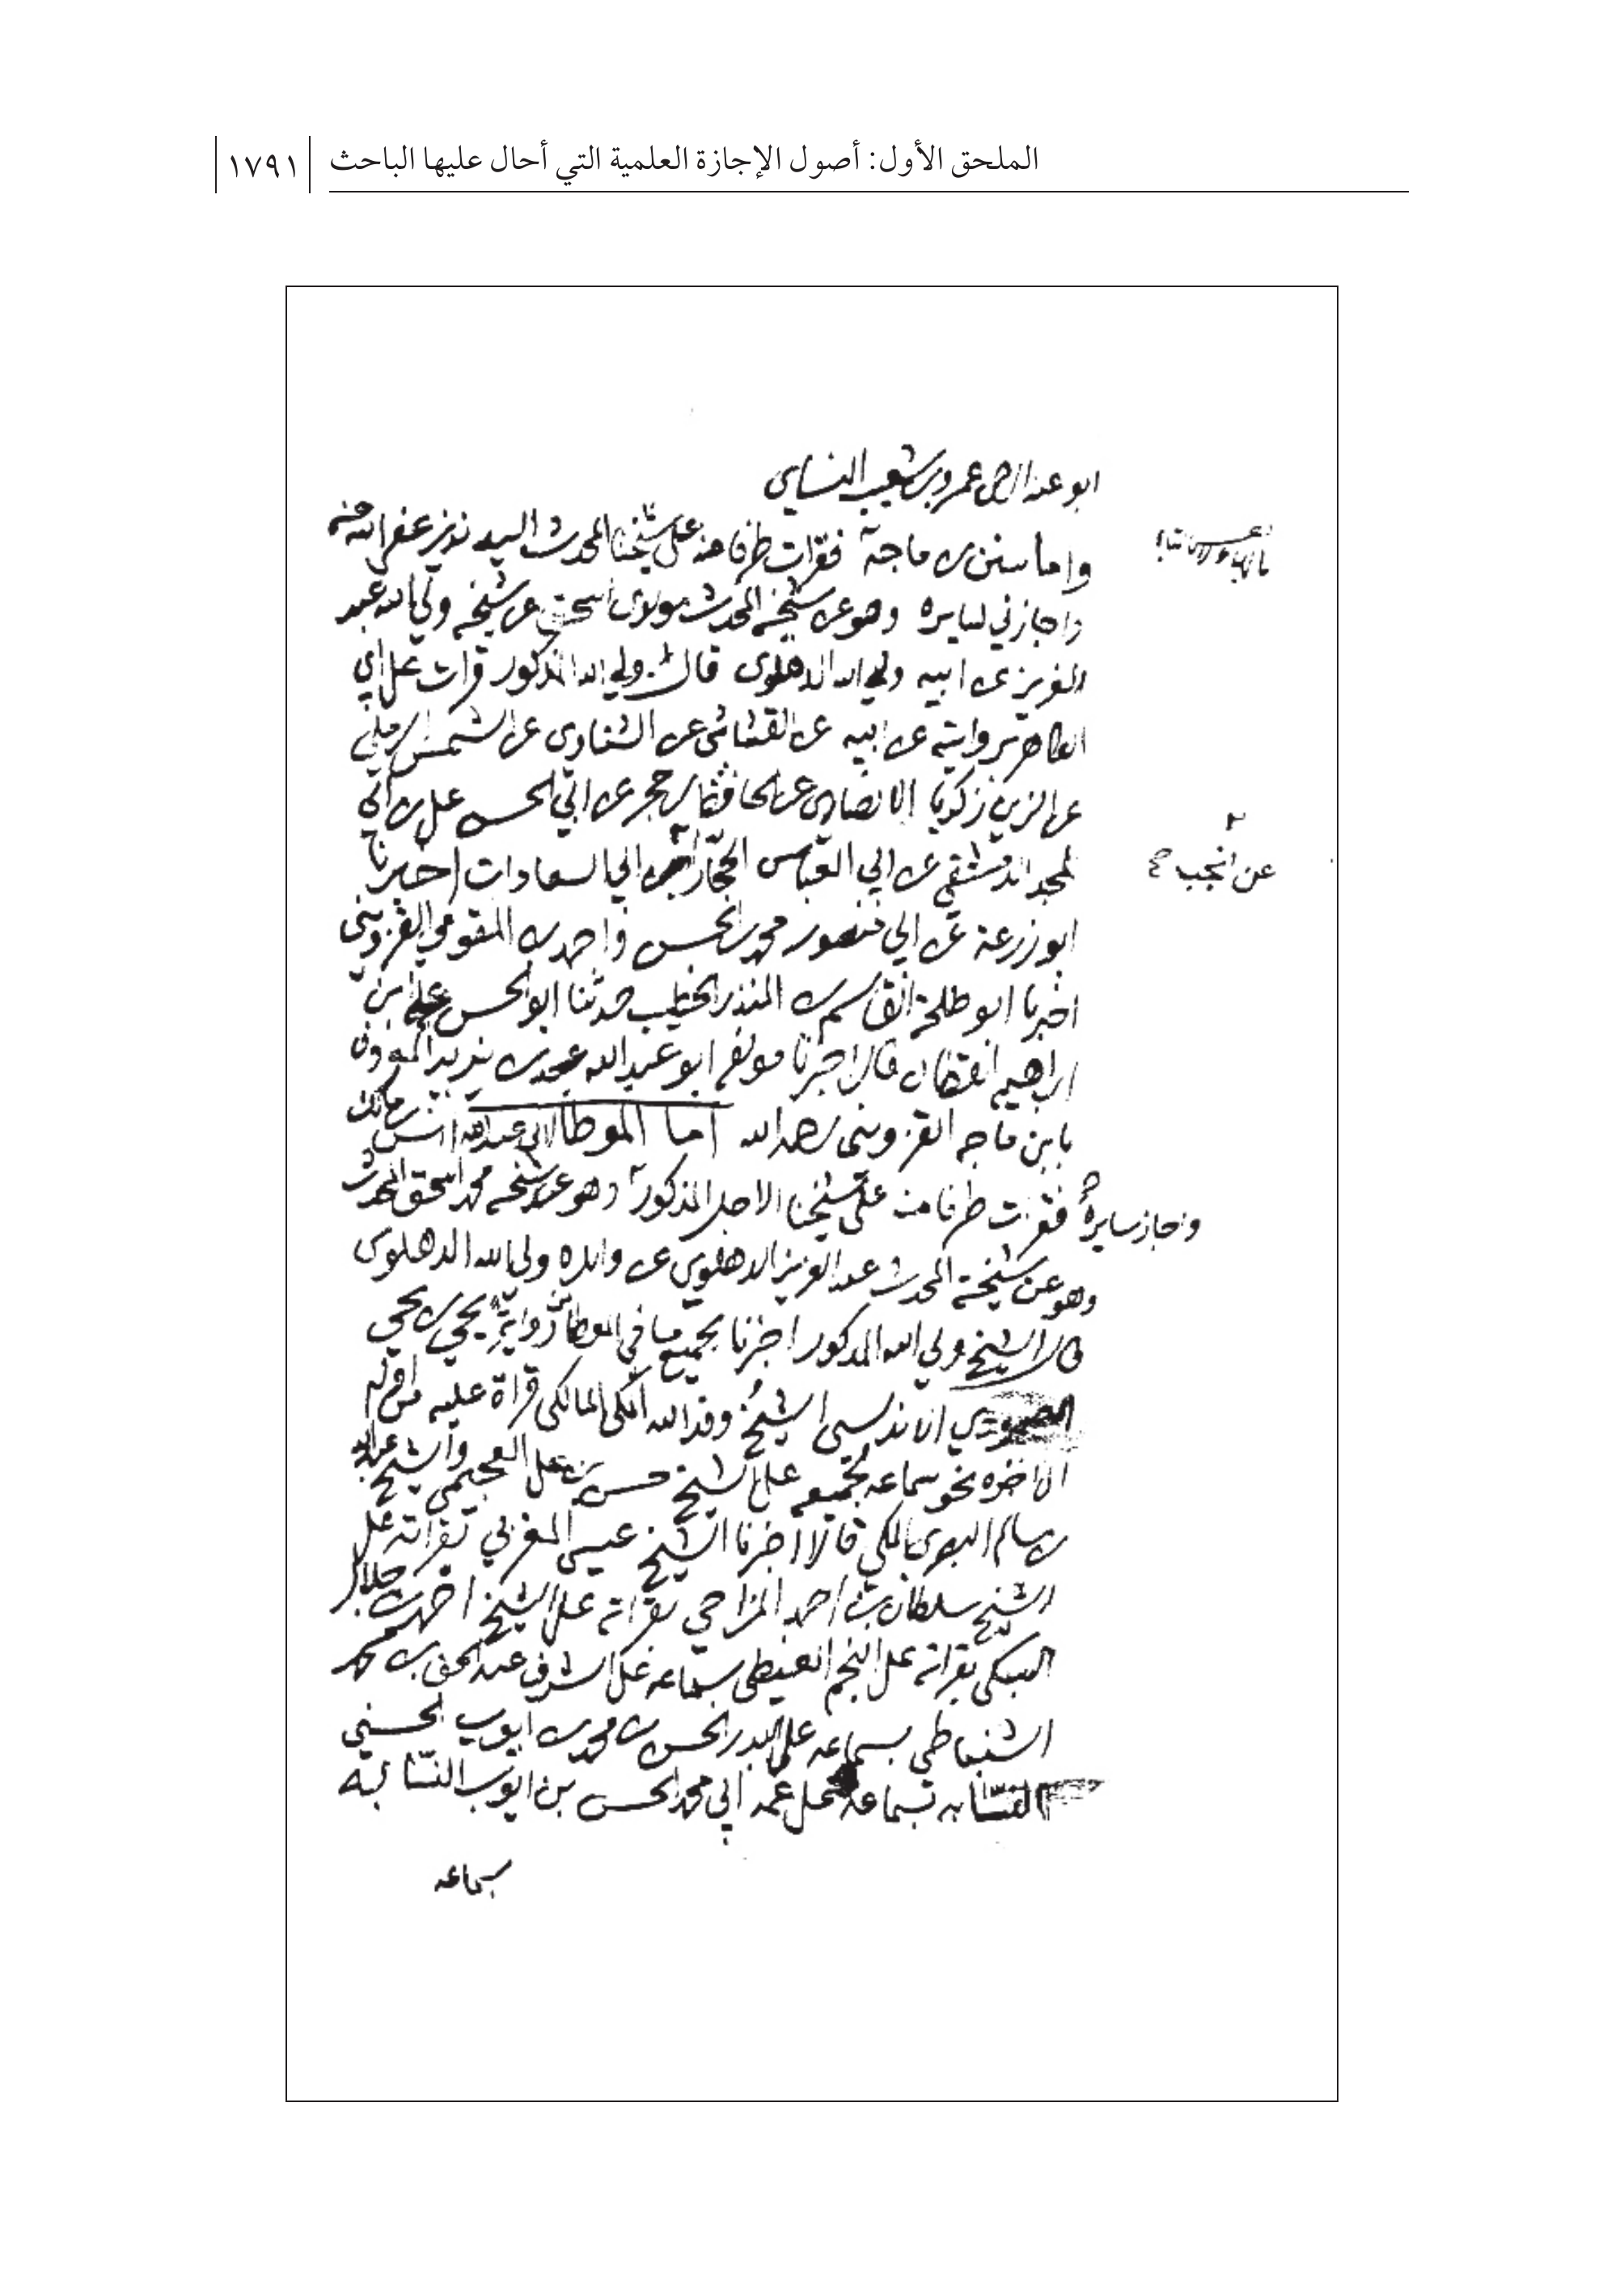 الملحق الأول: أصول الإجازة العلمية التي أحال عليها الباحث
١٧٩١
ابو عبد الرحمن عمرو بن شعيب النساي
واما سنن بن ماجة فقرات طرفا منه على شيخنا المحدث السيد نذير عفر الله عنه
واجازني لسايره وهو عن شيخه المحدث مولانا اسحق عن شيخه ولي الله عبد
العزيز عن ابيه ولي الله الدهلوى قال ولي الله المذكور قرات على ابي
الطاهر بروايته عن ابيه عن القشاشى عن الشناوى عن الشمس الرملي
عن الزين زكريا الانصارى عن الحافظ بن حجر عن ابي الحسن على بن ابي
المجد الدمشقي عن ابي العباس الحجار ابي السعادات اخبرنا
عن انجب صح
ابوزرعة عن ابي منصور محمد بن الحسن واحمد بن المقومي القزوينى
اخبرنا ابو طلحة القاسم بن المنذر الخطيب حدثنا ابو الحسن على ابن
ابراهيم القطان قال اخبرنا مولفه ابو عبد الله محمد بن يزيد المعروف
بابن ماجه القزوينى رحمه الله اما الموطا لابي عبد الله انس بن مالك
فقرات طرفا منه على شيخنا الاجل المذكور وهو عن شيخه محمد اسحق المحدث
واجاز سايره صح
وهو عن شيخه المحدث عبد العزيز الدهلوي عن والده ولي الله الدهلوى
قال الشيخ ولي الله المذكور اخبرنا بجميع ما في الموطا رواية يحيى بن يحيى
المصمودي الاندلسى الشيخ وفد الله المكى المالكى قراة عليه من اوله
الى اخره نحو سماعه بجميعه على الشيخ حسن بن على العجيمى والشيخ عبد الله
بن سالم البصرى المكي قالا اخبرنا الشيخ عيسى المغربي بقراته على
الشيخ سلطان بن احمد المزاحي بقراته على الشيخ احمد بن خليل
السبكى بقراته على النجم الغيطى بسماعه على الشرف عبد الحق بن محمد
السنباطي بسماعه على البدر الحسن بن محمد بن ايوب الحسني
النسابه بسماعه على عمه ابي محمد الحسن بن ايوب النسابة
بسماعه